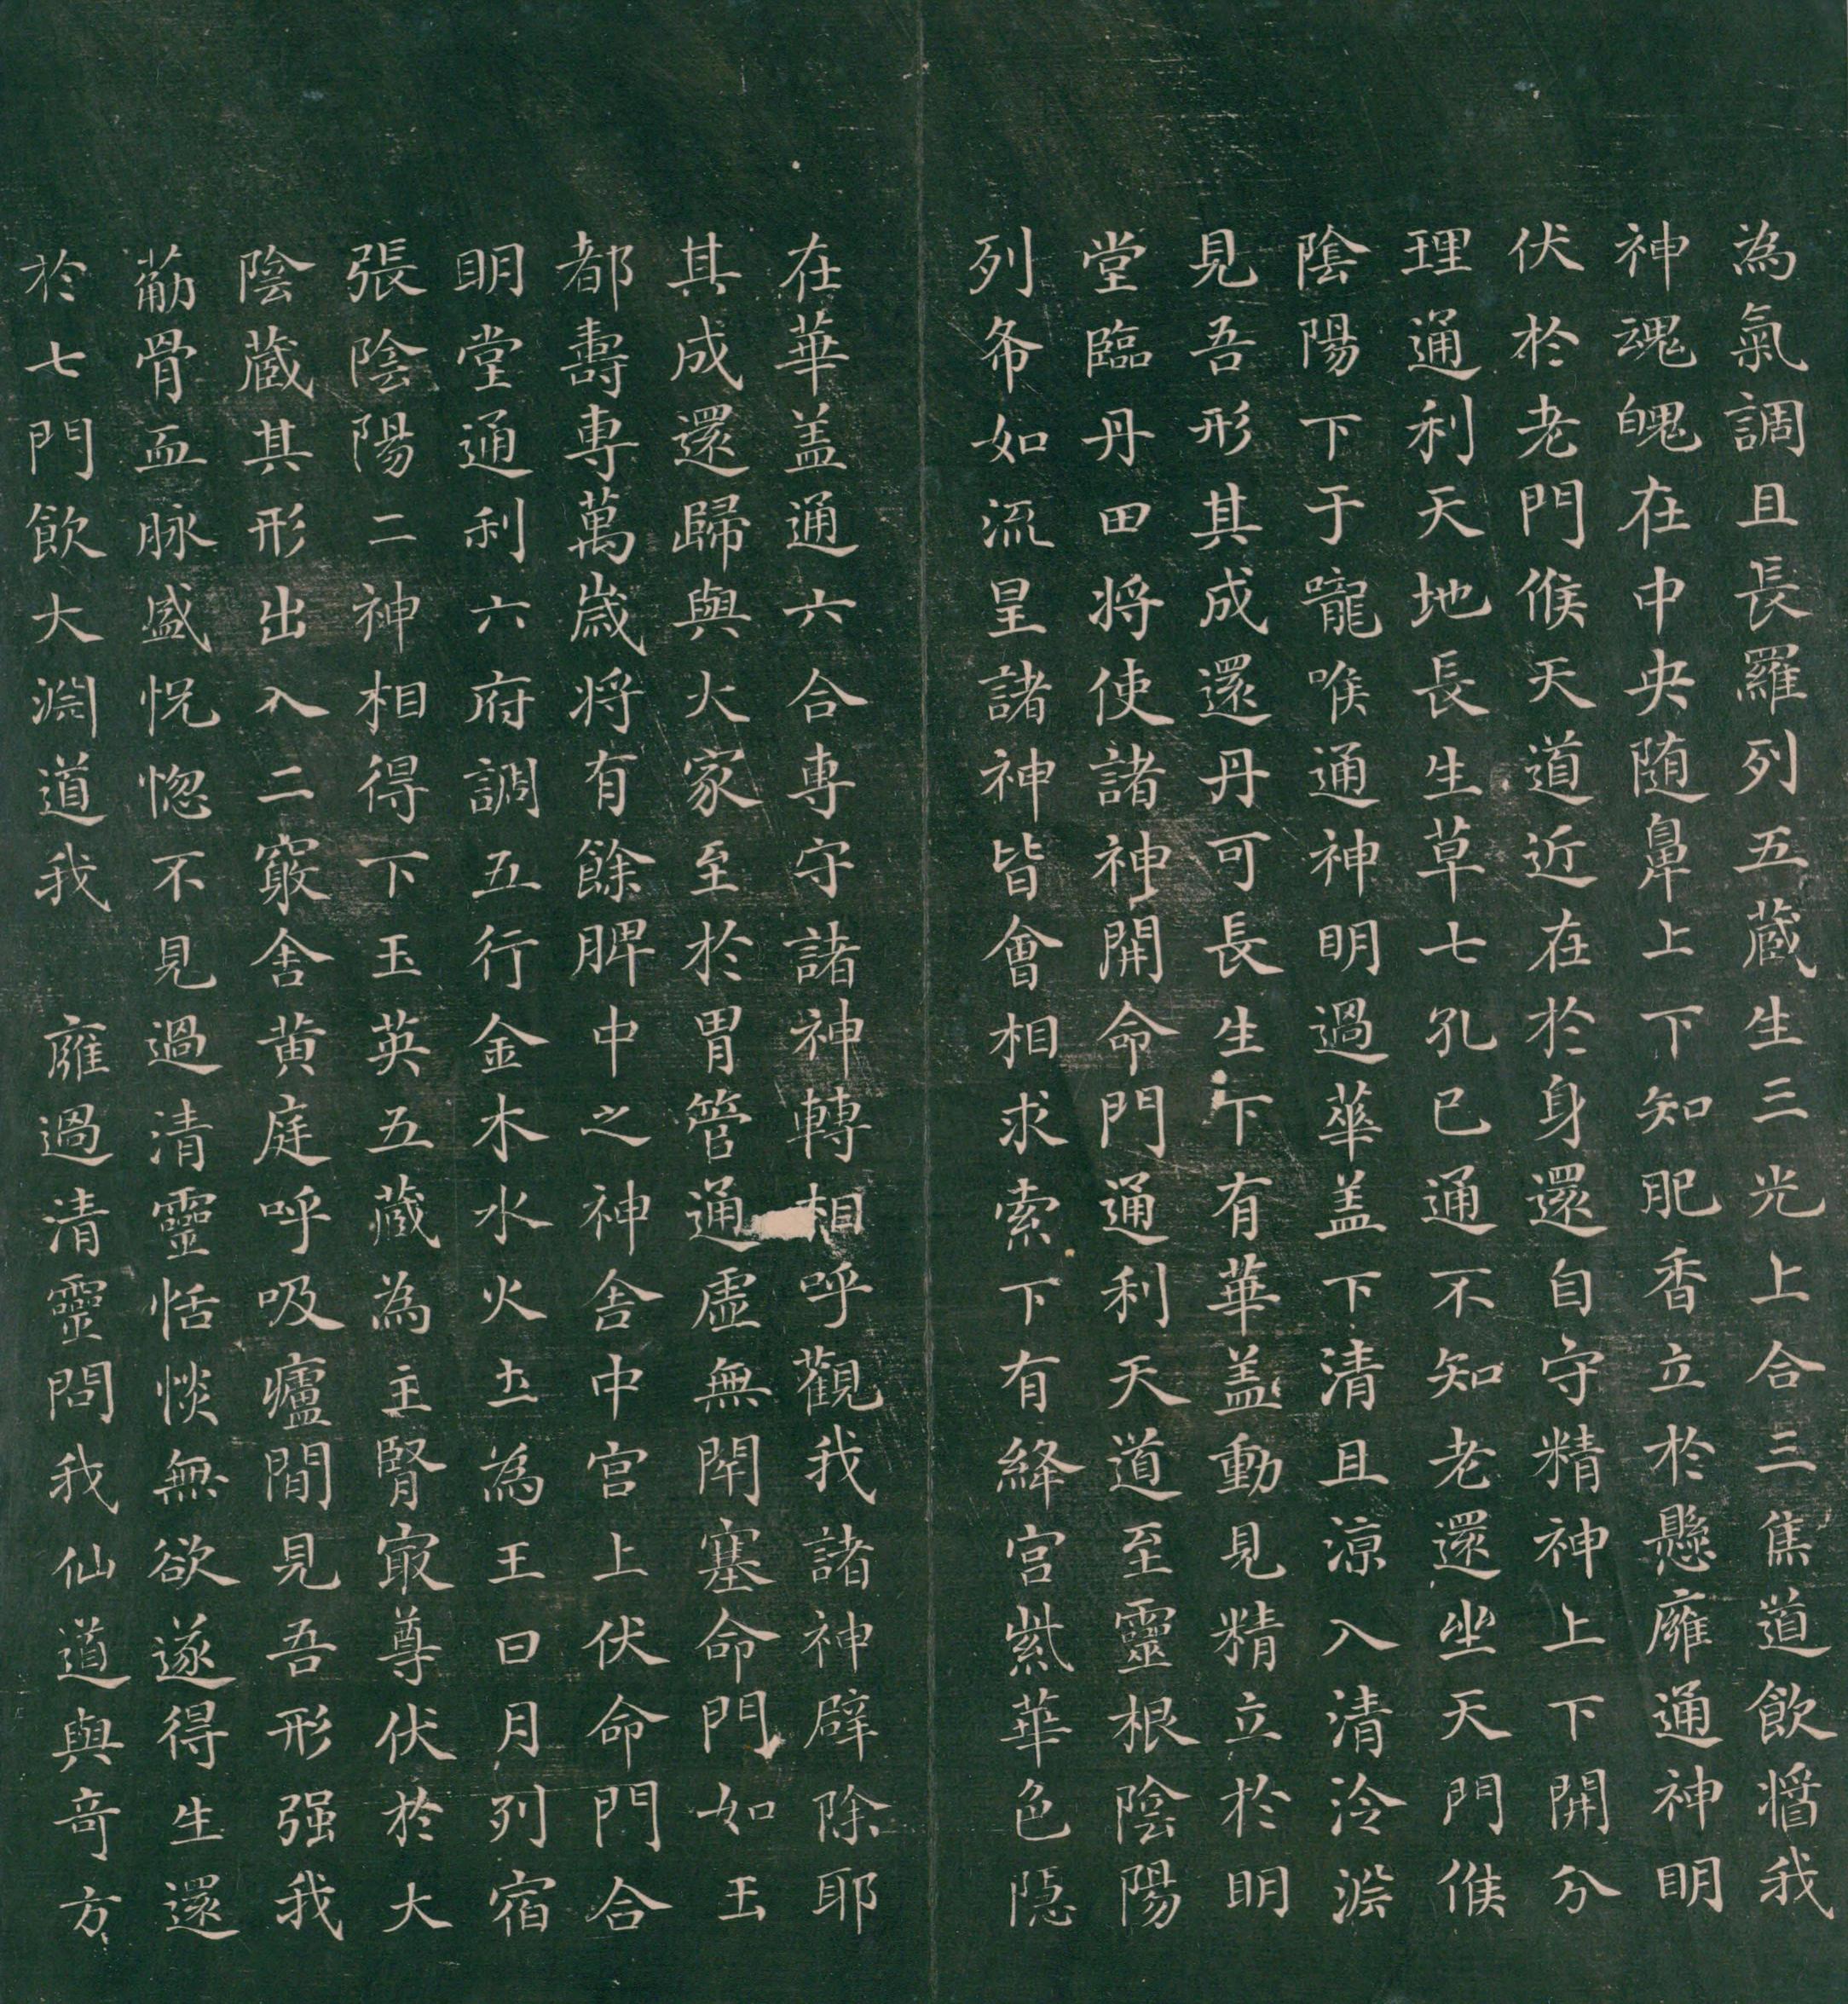 為氣調且長羅列五蔵生三光上合三焦道飲醬我
神魂魄在中央随鼻上下知肥香立於懸廱通神明
伏於老門候天道近在於身還自守精神上下開分
理通利天地長生草七孔已通不知老還坐天門候
陰陽下于嚨喉通神明過華盖下清且涼入清泠淵
見吾形其成還丹可長生下有華盖動見精立於明
堂臨丹田将使諸神開命門通利天道至靈根陰陽
列布如流星諸神皆會相求索下有絳宫紫華色隠
在華盖通六合専守諸神轉相呼觀我諸神辟除耶
其成還歸與火家至於胃管通虚無閇塞命門如玉
都壽専萬歳将有餘脾中之神舎中宫上伏命門合
明堂通利六府調五行金木水火土為王日月列宿
張陰陽二神相得下玉英五蔵為主腎冣尊伏於大
陰蔵其形出入二竅舎黄庭呼吸廬間見吾形强我
筋骨血脉盛怳惚不見過清靈恬惔無欲遂得生還
於七門飲大淵道我 廱過清靈問我仙道與奇方